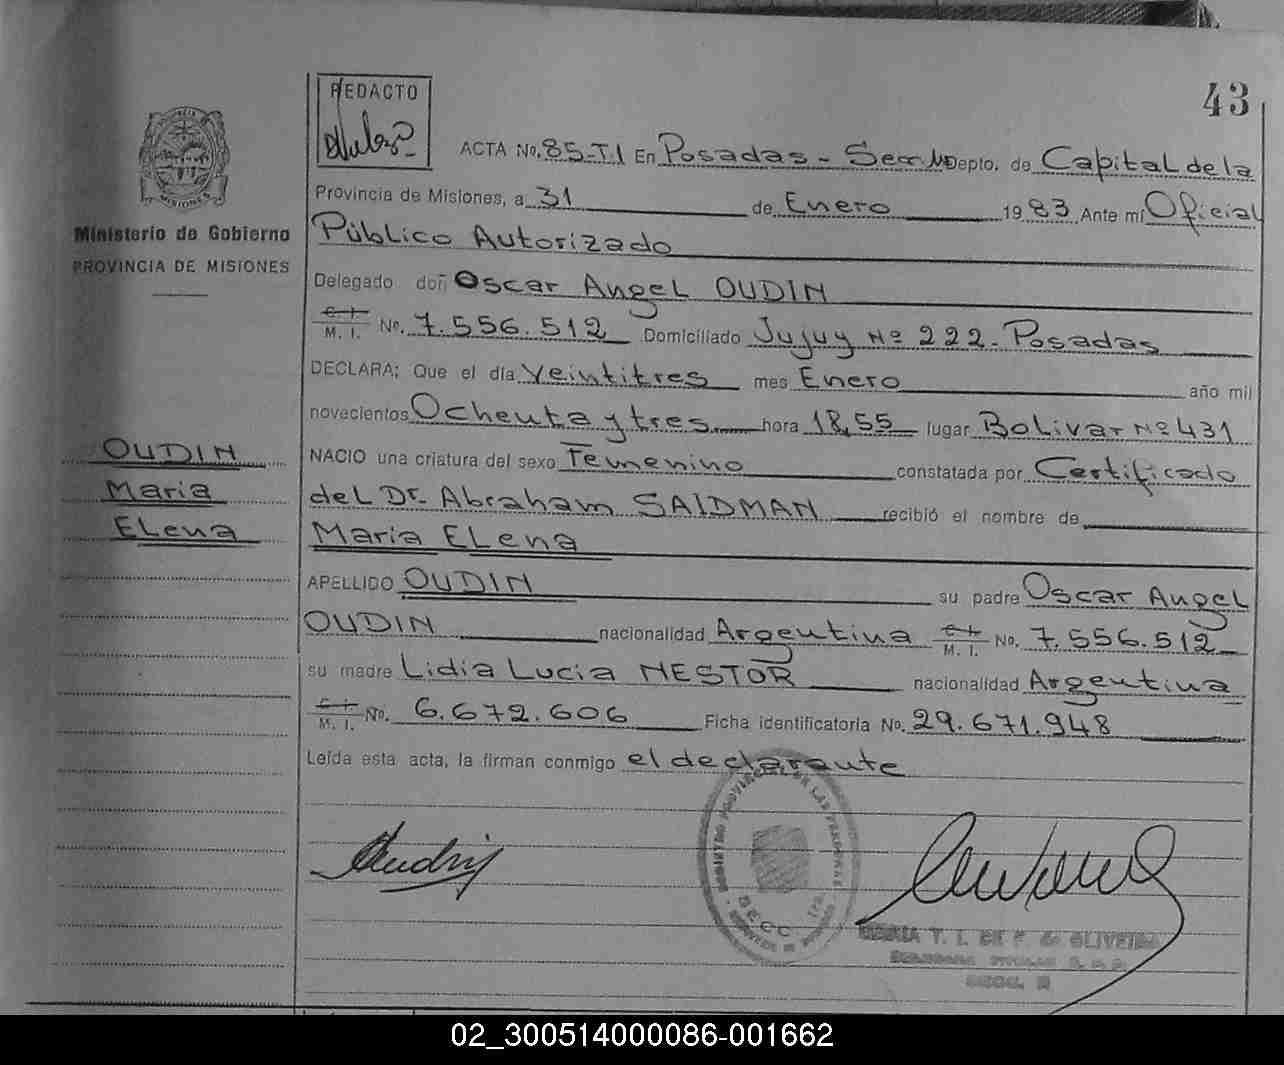 43
REDACTO
ACTA No. 85-T.I En Posadas - Secc. Depto. de Capital de la
Provincia de Misiones, a 31 de Enero 1983 Ante mí Oficial
Público Autorizado
Delegado don Oscar Angel OUDIN
C. I.
M. I. No. 7.556.512 Domiciliado Jujuy Nº 222 - Posadas
DECLARA; Que el día veintitres mes Enero año mil
novecientos Ochenta y tres hora 18,55 lugar Bolivar Nº 431
NACIO una criatura del sexo Femenino constatada por Certificado
del Dr. Abraham SAIDMAN recibió el nombre de
Maria ELena
APELLIDO OUDIN su padre Oscar Angel
OUDIN nacionalidad Argentina C. I. M. I. No. 7.556.512
su madre Lidia Lucia NESTOR nacionalidad Argentina
C. I.
M. I. No. 6.672.606 Ficha identificatoria No. 29.671.948
Leída esta acta, la firman conmigo el declarante
MISIONES
Ministerio de Gobierno
PROVINCIA DE MISIONES
OUDIN
Maria
ELena
REGISTRO PROVINCIAL DE LAS PERSONAS
SECC
MARIA T. I. DE F. de OLIVEIRA
02_300514000086-001662